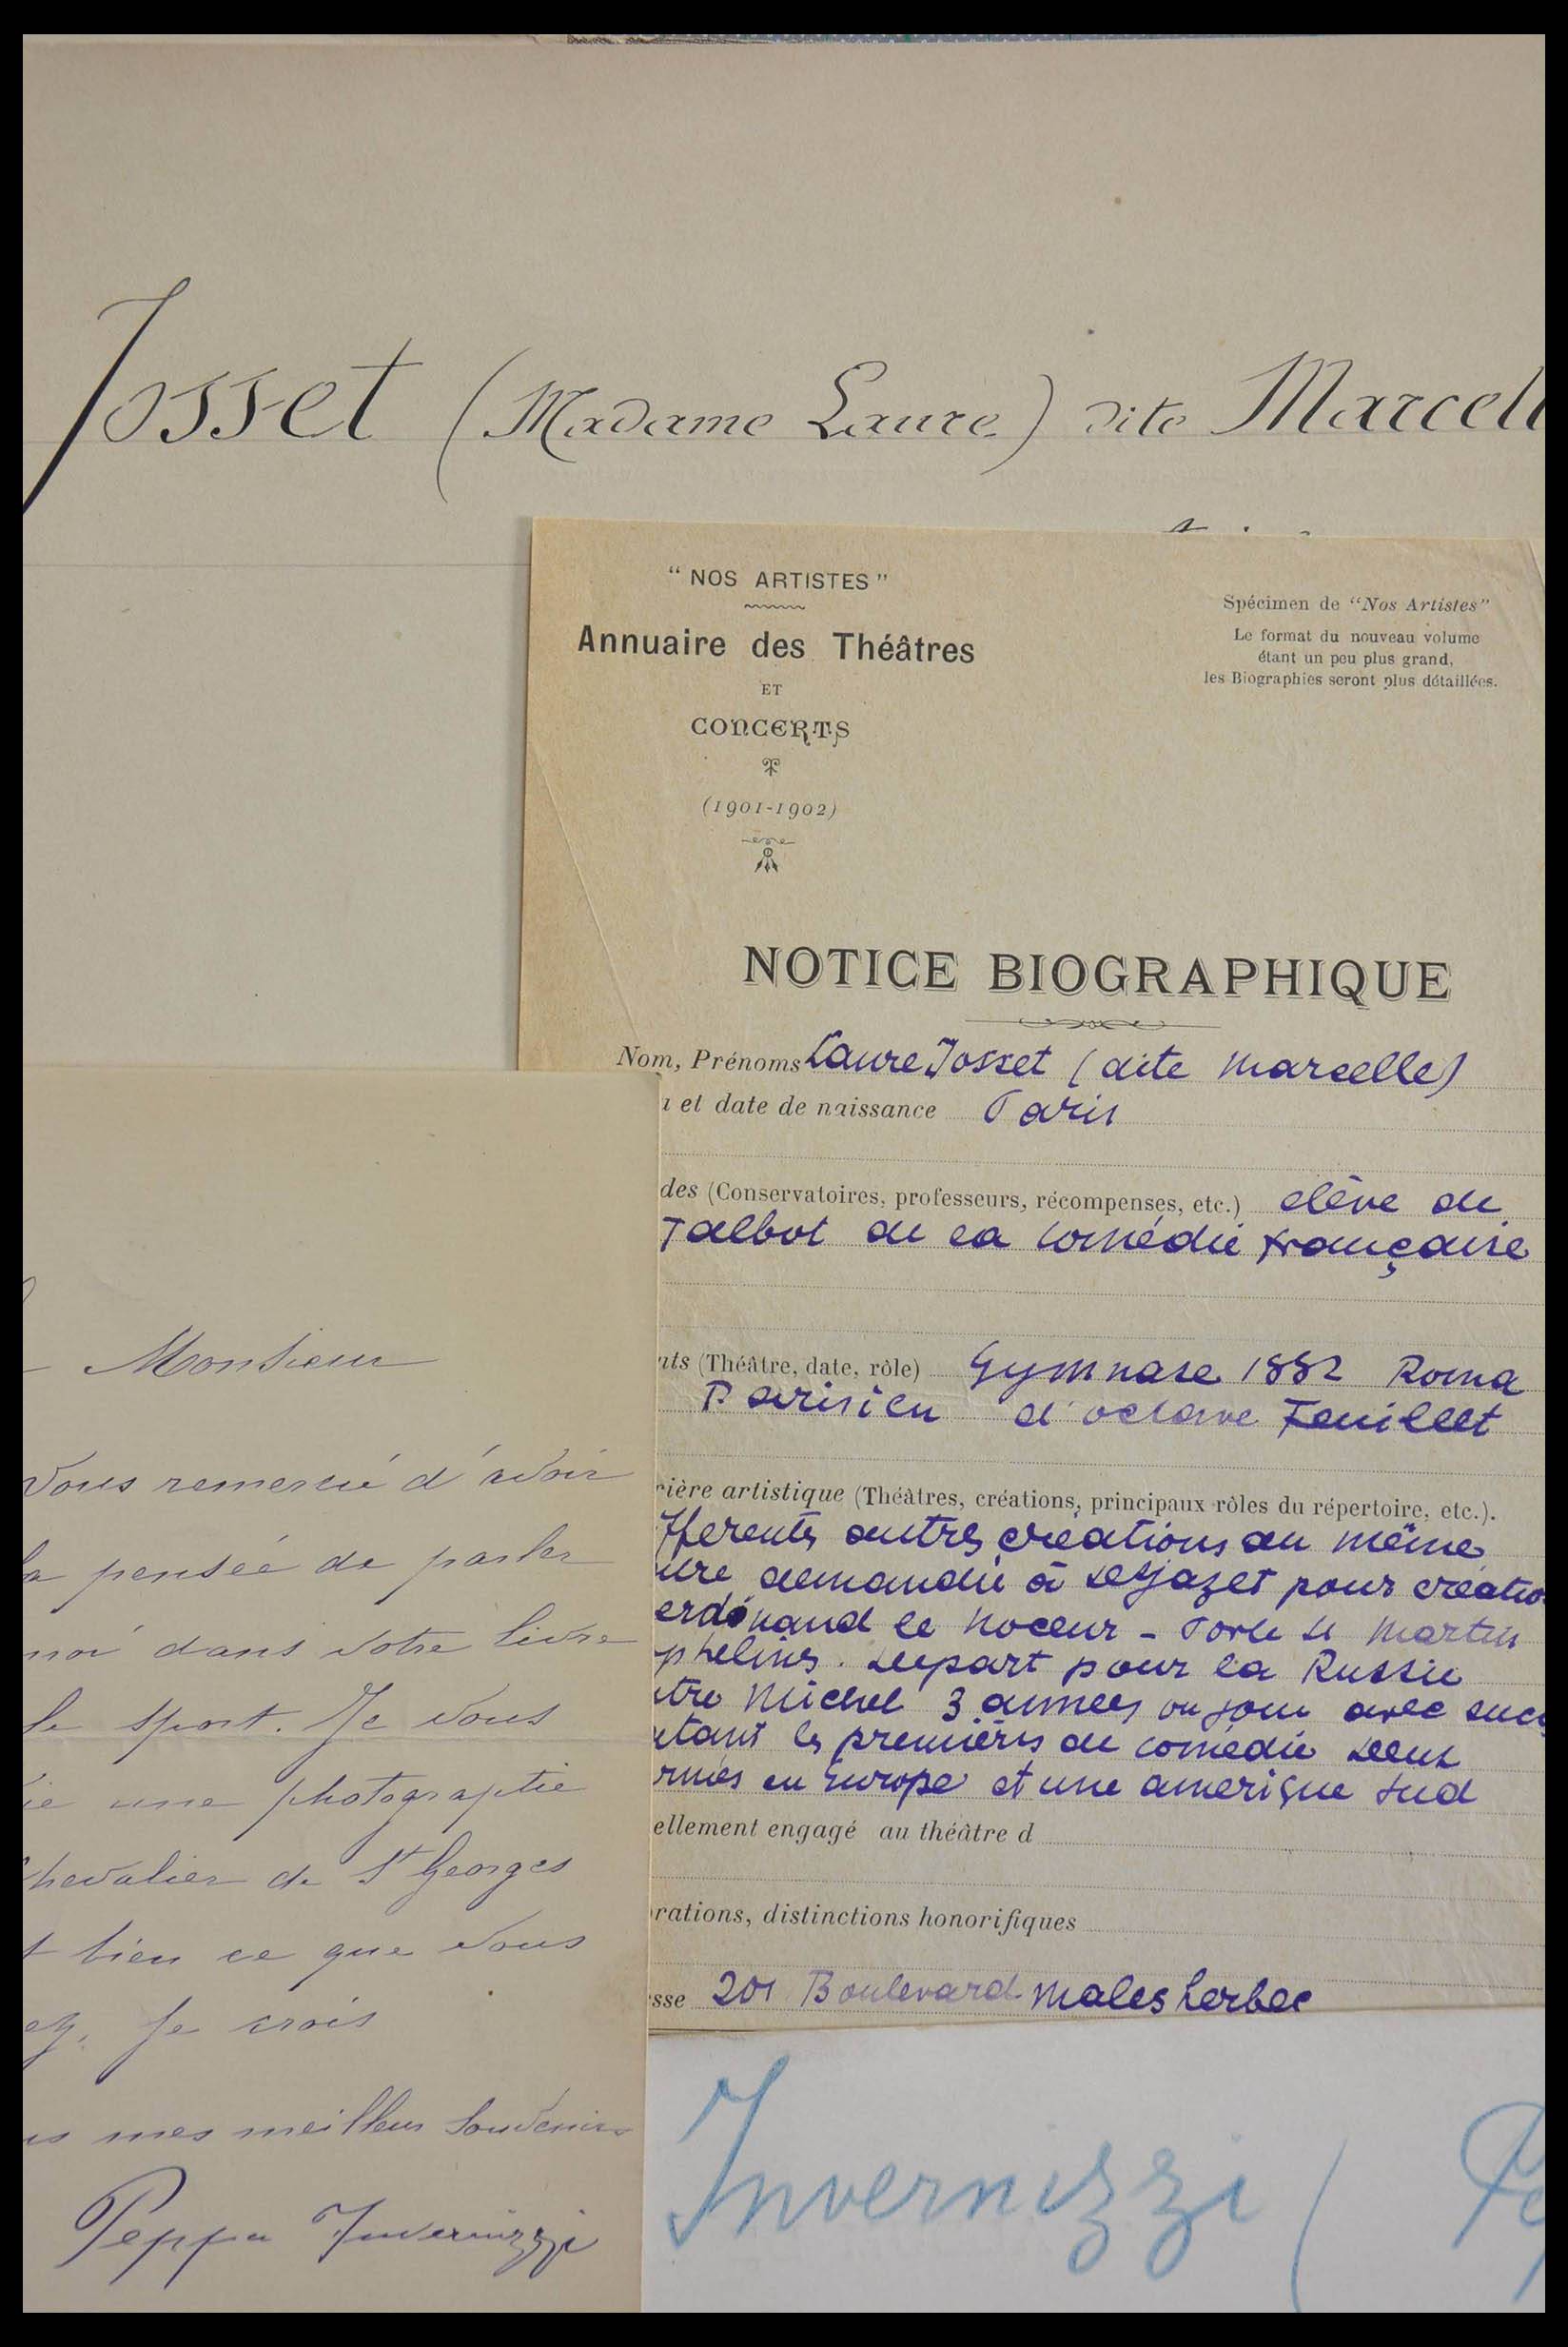 Josset (Madame Laure) dite Marcell
“ NOS ARTISTES ”
Annuaire des Théâtres
ET
CONCERTS
(1901-1902)
Spécimen de “Nos Artistes”
Le format du nouveau volume
étant un peu plus grand,
les Biographies seront plus détaillées.
NOTICE BIOGRAPHIQUE
Nom, Prénoms Laure Josset (dite Marcelle)
et date de naissance Paris
des (Conservatoires, professeurs, récompenses, etc.) élève de
Talbot de la Comédie française
nts (Théâtre, date, rôle) Gymnase 1882 Roman
Parisien d'octave Feuillet
rière artistique (Théâtres, créations, principaux rôles du répertoire, etc.).
fferents autres créations au même
demandée à Dejazet pour créatio
erdinand le Noceur - Porte St Martin
phelins. Depart pour la Russie
tre Michel 3 années ou joue avec succ
les premières de comédie Deux
en Europe et une amerique sud
ellement engagé au théâtre d
rations, distinctions honorifiques
sse 201 Boulevard Malesherbes
Monsieur
Vous remercie d'avoir
la pensée de parler
moi dans votre livre
le sport. Je vous
ie une photographie
Chevalier de St Georges
t bien ce que vous
ez. Je crois
us mes meilleurs Souvenirs
Peppa Invernizzi
Invernizzi ( Pe